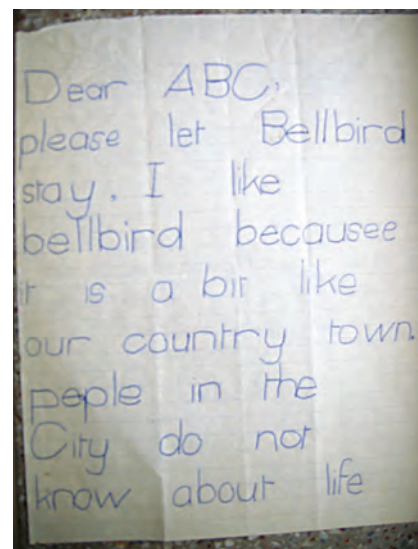 Dear ABC,
please let Bellbird
stay. I like
bellbird becausee
it is a bit like
our country town.
peple in the
City do not
know about life